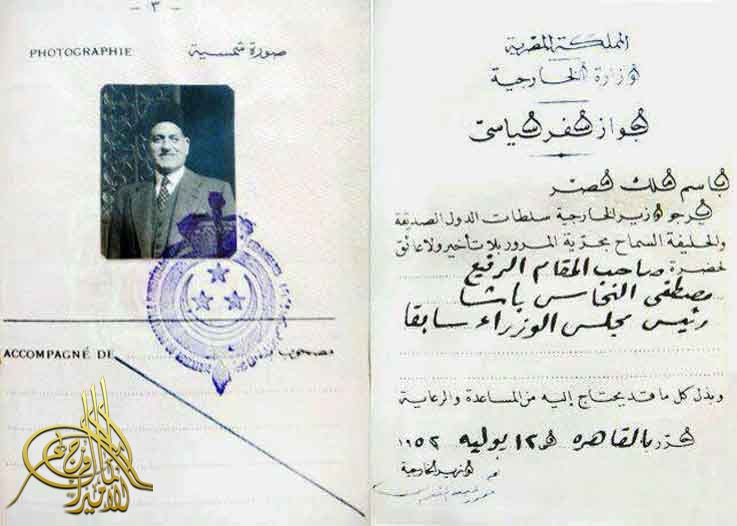 - ٣ -
PHOTOGRAPHIE
صورة شمسية
ACCOMPAGNÉ DE
مصحوب بـ
المملكة المصرية
وزارة الخارجية
جواز سفر سياسى
باسم ملك مصر
يرجو وزير الخارجية سلطات الدول الصديقة
والحليفة السماح بحرية المرور بلا تأخير ولا عائق
لحضرة صاحب المقام الرفيع
مصطفى النحاس باشا
رئيس مجلس الوزراء سابقا
وبذل كل ما قد يحتاج إليه من المساعدة والرعاية
صدر بالقاهره فى ١٢ يوليه ١٩٥٢
وزير الخارجية